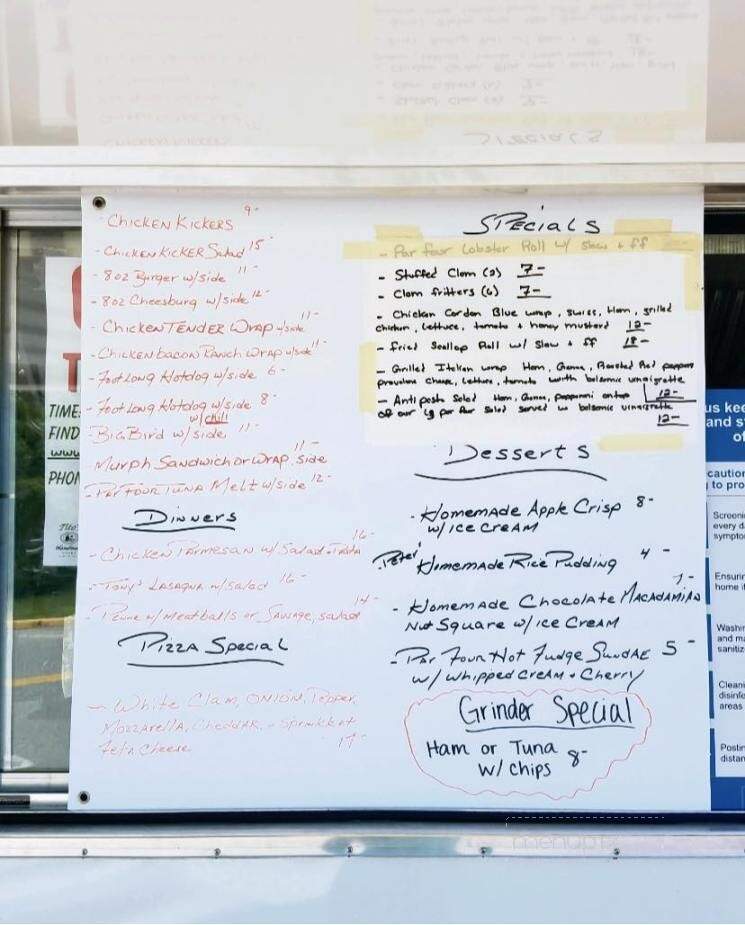 - Chicken Kickers 9-
- Chicken Kicker Salad 15-
- 8oz Burger w/side 11-
- 8oz Cheesburg w/side 12-
- Chicken Tender Wrap w/side 11-
- Chicken bacon Ranch wrap w/side 11-
- Foot Long Hotdog w/side 6-
- Foot Long Hotdog w/side 8-
w/chili
- Big Bird w/side 11-
Murph Sandwich or Wrap, side 11-
- Par Four Tuna Melt w/side 12-
Dinners
- Chicken Parmesan w/ Salad + Pasta 16-
- Tony's Lasagna w/Salad 16-
- Penne w/ Meatballs or Sausage, salad 14-
Pizza Special
- White Clam, Onion, Pepper,
Mozzarella, Cheddar, + Sprinkle of
Feta Cheese 17-
Specials
- Par four Lobster Roll w/ Slaw + ff
- Stuffed Clam (2) 7-
- Clam fritters (6) 7-
- Chicken Cordon Blue wrap, swiss, Ham, grilled
chicken, lettuce, tomato + honey mustard 12-
- fried Scallop Roll w/ Slaw + ff 18-
- Grilled Italian wrap Ham, Genoa, Roasted Red peppers
provolone cheese, lettuce, tomato with balsamic vinaigrette
12-
- Antipasto Salad Ham, Genoa, pepperoni ontop
of our lg par four Salad served w balsamic vinaigrette
12-
Desserts
- Homemade Apple Crisp 8-
w/ Ice Cream
Petes' Homemade Rice Pudding 4-
- Homemade Chocolate Macadamian 7-
Nut Square w/ Ice Cream
- Par Four Hot Fudge Sundae 5-
w/ Whipped Cream + Cherry
Grinder Special
Ham or Tuna 8-
w/ chips
TIME
FIND
www
PHON
Tito's
us kee
and s
of
caution
to pro
Screeni
every d
sympto
Ensurin
home if
Washin
and ma
sanitiz
Cleani
disinfe
areas
Postin
distan
menupix